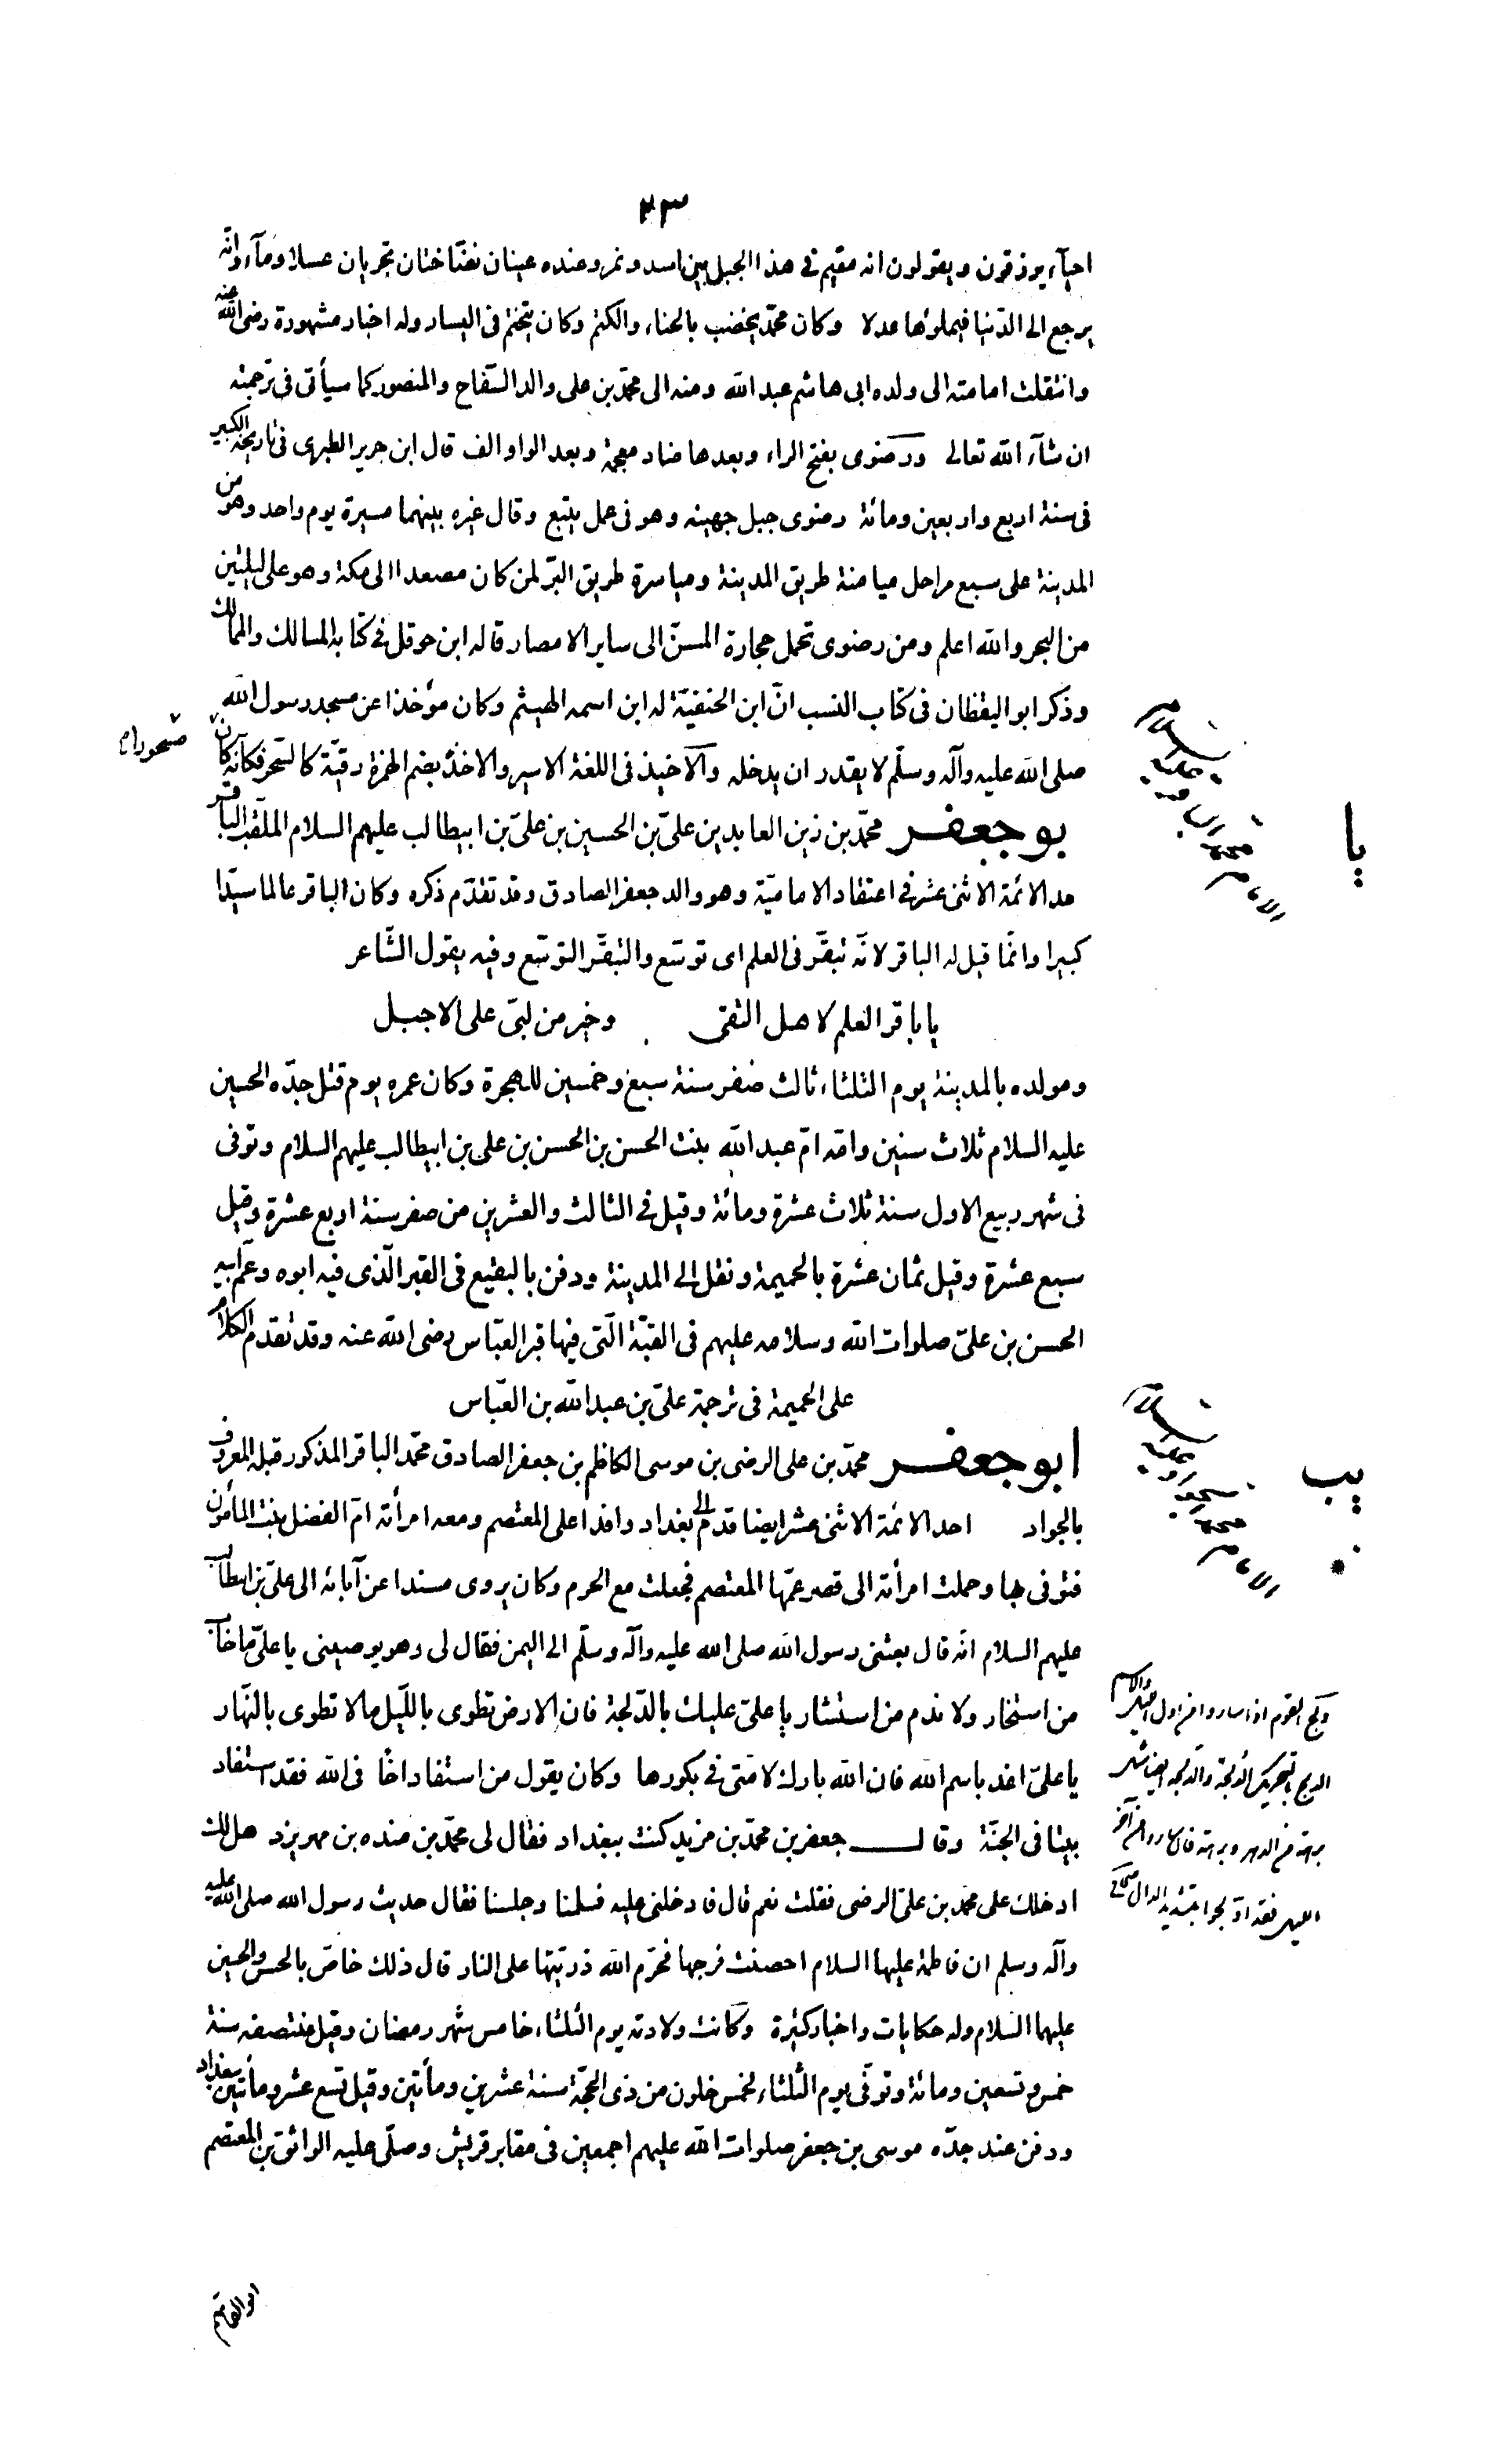 ٢٣
احيآء يرزقون ويقولون انه مقيم فى هذا الجبل بين اسد ونمر وعنده عينان نضّاختان تجريان عسلا ومآء وانّه
يرجع الى الدّنيا فيملؤها عدلا وكان محمّد يخضب بالحناء والكتم وكان يتختم فى اليسار وله اخبار مشهورة رضى الله عنه
وانتقلت امامته الى ولده ابى هاشم عبد الله ومنه الى محمّد بن على والد السّفاح والمنصور كما سيأتى فى ترجمته
ان شآء الله تعالى ورضوى بفتح الراء وبعدها ضاد معجمة وبعد الواو الف قال ابن جرير الطبرى فى تاريخه الكبير
فى سنة اربع واربعين ومائة رضوى جبل جهينه وهو فى عمل ينبع وقال غيره بينهما مسيرة يوم واحد وهو من
المدينة على سبع مراحل ميامنة طريق المدينة ومياسرة طريق البرّ لمن كان مصعدا الى مكة وهو على ليلتين
من البحر والله اعلم ومن رضوى تحمل حجارة المسنّ الى ساير الامصار قاله ابن حوقل فى كتابه المسالك والممالك
وذكر ابو اليقظان فى كتاب النسب انّ ابن الحنفيّة له ابن اسمه الهيثم وكان مؤخذا عن مسجد رسول الله
صلى الله عليه وآله وسلّم لا يقدر ان يدخله والاخيذ فى اللغة الاسير والاخذ بضم الهمزة رقيّة كالسّحر فكانّه كان
مسحورا
بو جعفر محمّد بن زين العابدين علىّ بن الحسين بن علىّ بن ابيطالب عليهم السلام الملقّب الباقر
حد الائمّة الاثنى عشر فى اعتقاد الاماميّة وهو والد جعفر الصادق وقد تقدّم ذكره وكان الباقر عالما سيّدا
كبيرا وانّما قيل له الباقر لانّه تبقّر فى العلم اى توسّع والتبقّر التوسّع وفيه يقول الشّاعر
يا باقر العلم لاهل التقى وخير من لبّى على الاجبل
ومولده بالمدينة يوم الثلثاء ثالث صفر سنة سبع وخمسين للهجرة وكان عمره يوم قتل جدّه الحسين
عليه السلام ثلاث سنين وامّه امّ عبد الله بنت الحسن بن الحسن بن على بن ابيطالب عليهم السلام وتوفى
فى شهر ربيع الاول سنة ثلاث عشرة ومائة وقيل فى الثالث والعشرين من صفر سنة اربع عشرة وقيل
سبع عشرة وقيل ثمان عشرة بالحميمة ونقل الى المدينة ودفن بالبقيع فى القبر الّذى فيه ابوه وعمّ ابيه
الحسن بن علىّ صلوات الله وسلامه عليهم فى القبّة الّتى فيها قبر العبّاس رضى الله عنه وقد تقدم الكلام
على الحميمة فى ترجمة علىّ بن عبد الله بن العبّاس
ابو جعفر محمّد بن على الرضى بن موسى الكاظم بن جعفر الصادق محمّد الباقر المذكور قبله المعروف
بالجواد احد الائمّة الاثنى عشر ايضا قدم الى بغداد وافدا على المعتصم ومعه امرأته امّ الفضل بنت المأمون
فتوفى بها وحملت امرأته الى قصر عمّها المعتصم فجعلت مع الحرم وكان يروى مسندا عن آبائه الى علىّ بن ابيطالب
عليهم السلام انّه قال بعثنى رسول الله صلى الله عليه وآله وسلّم الى اليمن فقال لى وهو يوصينى يا علىّ ما خاب
من استخار ولا ندم من استشار يا علىّ عليك بالدّلجة فان الارض تطوى باللّيل ما لا تطوى بالنّهار
يا علىّ اغد باسم الله فان الله بارك لامّتى فى بكورها وكان يقول من استفاد اخًا فى الله فقد استفاد
بيتا فى الجنّة وقال جعفر بن محمّد بن مزيد كنت ببغداد فقال لى محمّد بن منده بن مهريزد هل لك
ادخلك على محمد بن علىّ الرضى فقلت نعم قال فادخلنى عليه فسلمنا وجلسنا فقال حديث رسول الله صلى الله عليه
وآله وسلم ان فاطمة عليها السلام احصنت فرجها فحرّم الله ذرّيّتها على النار قال ذلك خاصّ بالحسن والحسين
عليهما السّلام وله حكايات واخبار كثيرة وكانت ولادته يوم الثلثاء خامس شهر رمضان وقيل منتصفه سنة
خمس وتسعين ومائة وتوفّى يوم الثلثاء لخمس خلون من ذى الحجّة سنة عشرين ومأتين وقيل تسع عشر ومأتين ببغداد
ودفن عند جدّه موسى بن جعفر صلوات الله عليهم اجمعين فى مقابر قريش وصلّى عليه الواثق بن المعتصم
يا
الامام محمد الباقر عليه السلام
يب
الامام محمد الجواد عليه السلام
ابو القاسم